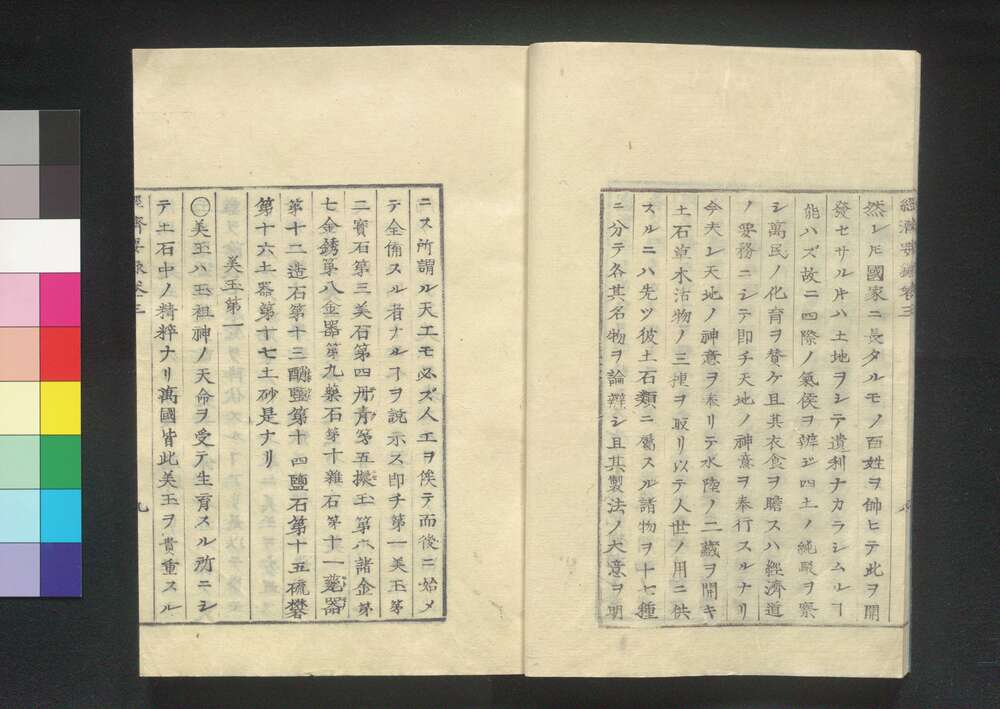 經濟要録卷三
然レ𪜈國家ニ長タルモノ百姓ヲ帥ヒテ此ヲ開
發セサル片ハ土地ヲシテ遺利ナカラシムルヿ
能ハズ故ニ四際ノ氣侯ヲ辨シ四土ノ純駁ヲ察
シ萬民ノ化育ヲ賛ケ且其衣食ヲ贍スハ經濟道
ノ要務ニシテ即チ天地ノ神意ヲ奉行スルナリ
今夫レ天地ノ神意ヲ奉リテ水陸ノ二藏ヲ開キ
土石草木活物ノ三種ヲ取リ以テ人世ノ用ニ供
スルニハ先ツ彼土石類ニ屬スル諸物ヲ十七種
ニ分テ各其名物ヲ論辨シ且其製法ノ大意ヲ明
ニス所謂ル天工モ必ズ人工ヲ俟テ而後ニ始メ
テ全備スル者ナルヿヲ説示ス即チ第一美玉第
二寳石第三美石第四丹青第五擬玉第六諸金第
七金銹第八金器第九藥石第十雜石第十一甆器
第十二造石第十三酒鹽第十四鹽石第十五硫礬
第十六土器第十七土砂是ナリ
美玉第一
○美玉ハ玉祖神ノ天命ヲ受テ生育スル所ニシ
テ土石中ノ精粹ナリ萬國皆此美玉ヲ貴重スル
經濟要録卷三
九